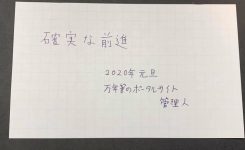 確実な前進
2020年 元旦
万年筆のポータルサイト
管理人